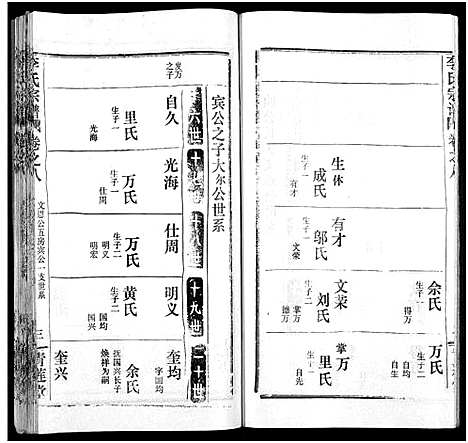 李氏宗譜 卷之八
生休
成氏
生子一
有才
有才
邬氏
生子一
文荣
文荣
刘氏
生子二
掌万
德万
余氏
生子一
得万
掌万
里氏
生子一
自先
万氏
生子二
自久
宾公之子大尔公世系
十九世
发万之子
自久
里氏
生子一
光海
光海
万氏
生子一
仕周
仕周
万氏
生子二
明义
明宏
明义
黄氏
生子二
国均
国兴
奎均
字国均
余氏
抚国兴长子
焕祥为嗣
奎兴
李氏宗譜 卷之八
文思公五房宾公一支世系
三
青莲堂